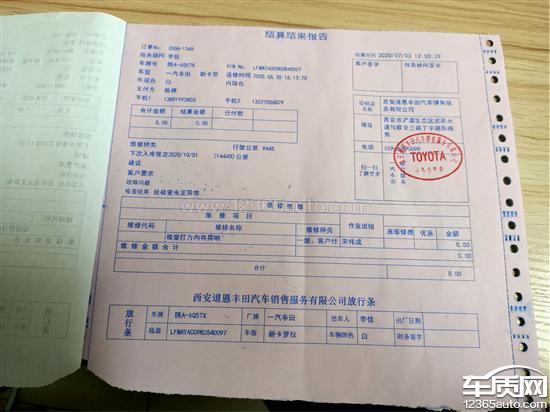 结算结果报告
订单NO. 2008-1345
结算时间 2020/07/03 12:50:39
服务顾问 李佳
车牌号 陕A-6Q57X
VIN No. LFMAYACG9K0540097
客户签字 服务顾问签字
车型 一汽丰田 新卡罗 送修时间 2020.06.30 16:13:20
外观色 白 内饰色
支付方 陈婷
手机1 13891992803 手机2 13227006029
合计金额 结算金额 已付款
0.00 0.00
经销店名称 西安道恩丰田汽车销售服务有限公司
地址 西安市浐灞生态区北辰大道与欧亚三路丁字路东南角
电话
扫一扫了解更多
TOYOTA
维修种类 行驶公里 9445
下次入库预定2020/10/01 (14445)公里
建议
客户要求
选择问题
检查结果 经检查未见异常
维修明细
维修项目
维修代码 维修名称 维修种类 作业班组 派维修费 优惠 金额
检查打方向有异响 一般, 客户付 宋伟成 0.00
维修金额合计 0.00
合计 0.00
西安道恩丰田汽车销售服务有限公司放行条
放行条
车牌 陕A-6Q57X 厂牌 一汽丰田 送车人 李佳 出厂日期
底盘 LFMAYACG9K0540097 车型 新卡罗拉 车辆颜色 白 财务签字
www.12365auto.com
车质网
12365auto.com